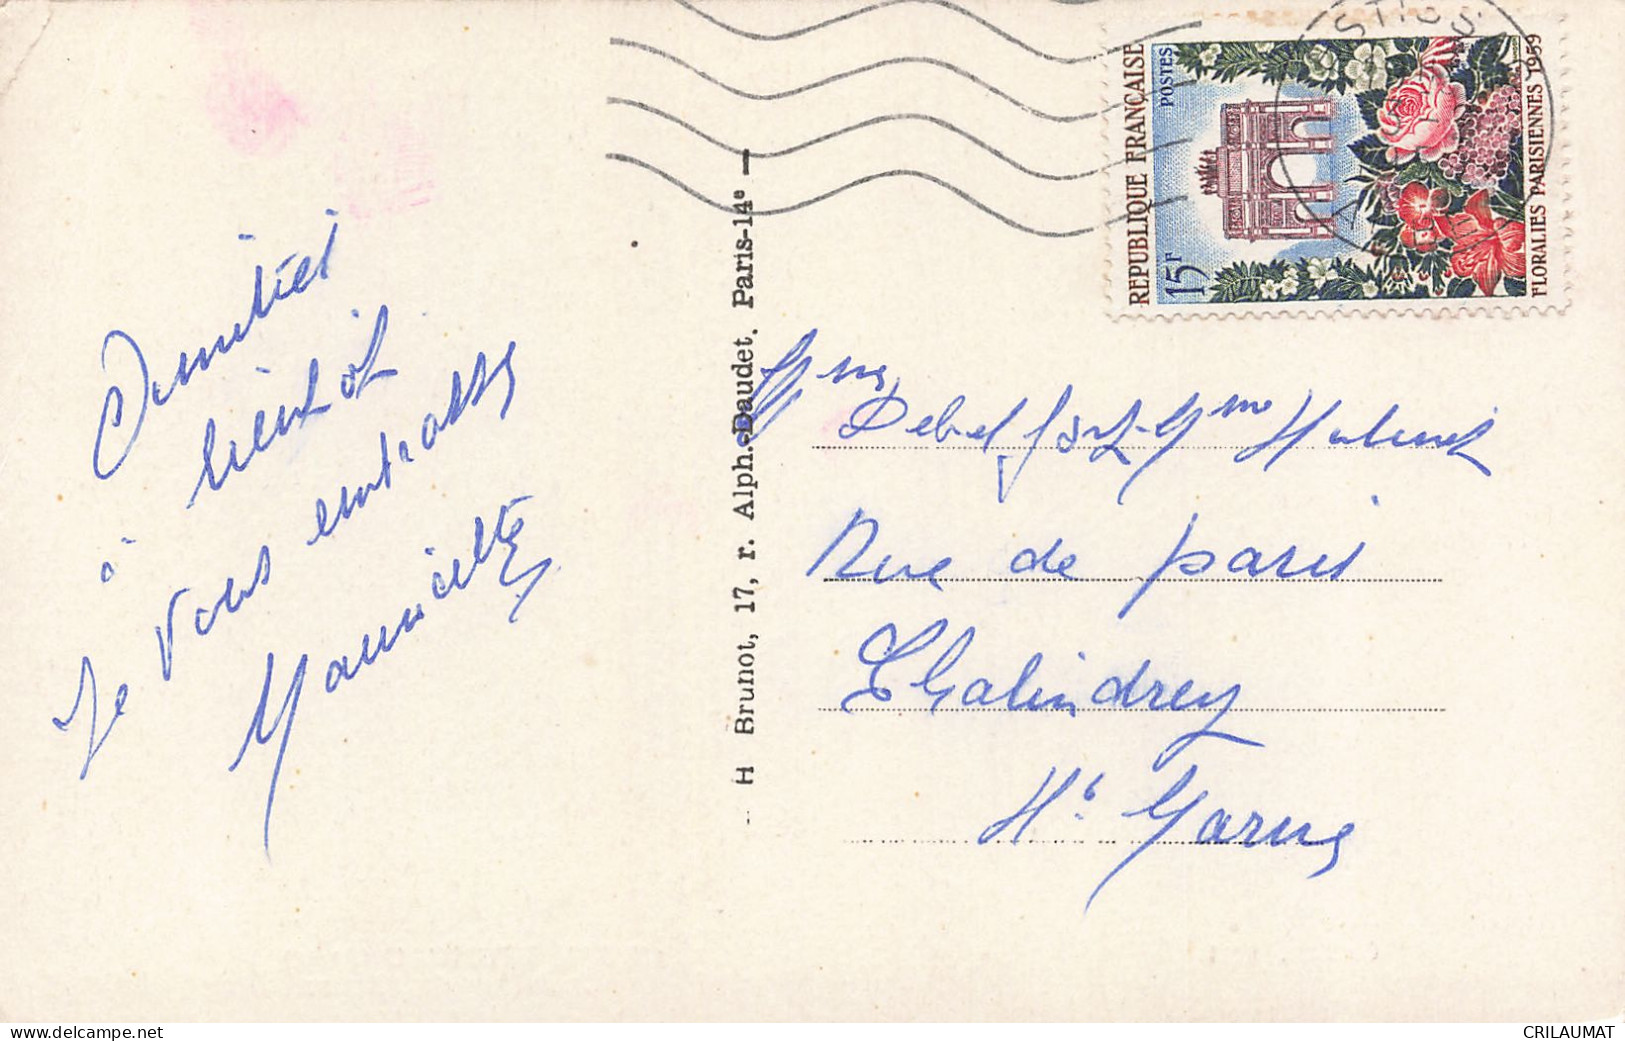 Amitiés
à bientôt
Je vous embrasse
Mauricette
H Brunot, 17, r. Alph.-Daudet. Paris-14e
RÉPUBLIQUE FRANÇAISE
POSTES
15F
FLORALIES PARISIENNES 1959
Mme
Rue de Paris
Chalindrey
Hte Marne
www.delcampe.net
CRILAUMAT